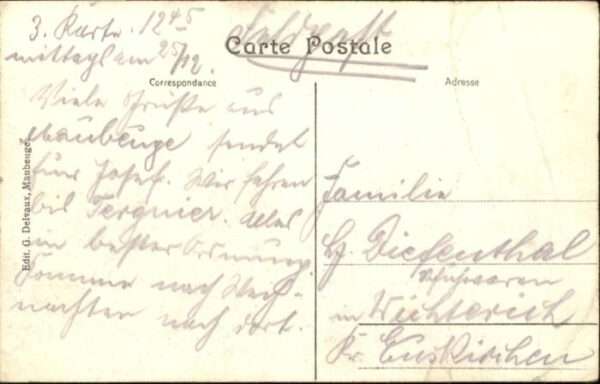 3. Karte. 12 45
mittags am 25/12.
Feldpost
Carte Postale
Correspondance
Adresse
Viele Grüße aus
Maubeuge sendet
Euer Josef. Wir fahren
bis Tergnier. Alles
in bester Ordnung
komme nach Weih-
nachten nach dort.
Familie
Hj. Diefenthal
Schuhwaren
in Wichterich
Kr. Euskirchen
Edit. G. Delvaux, Maubeuge